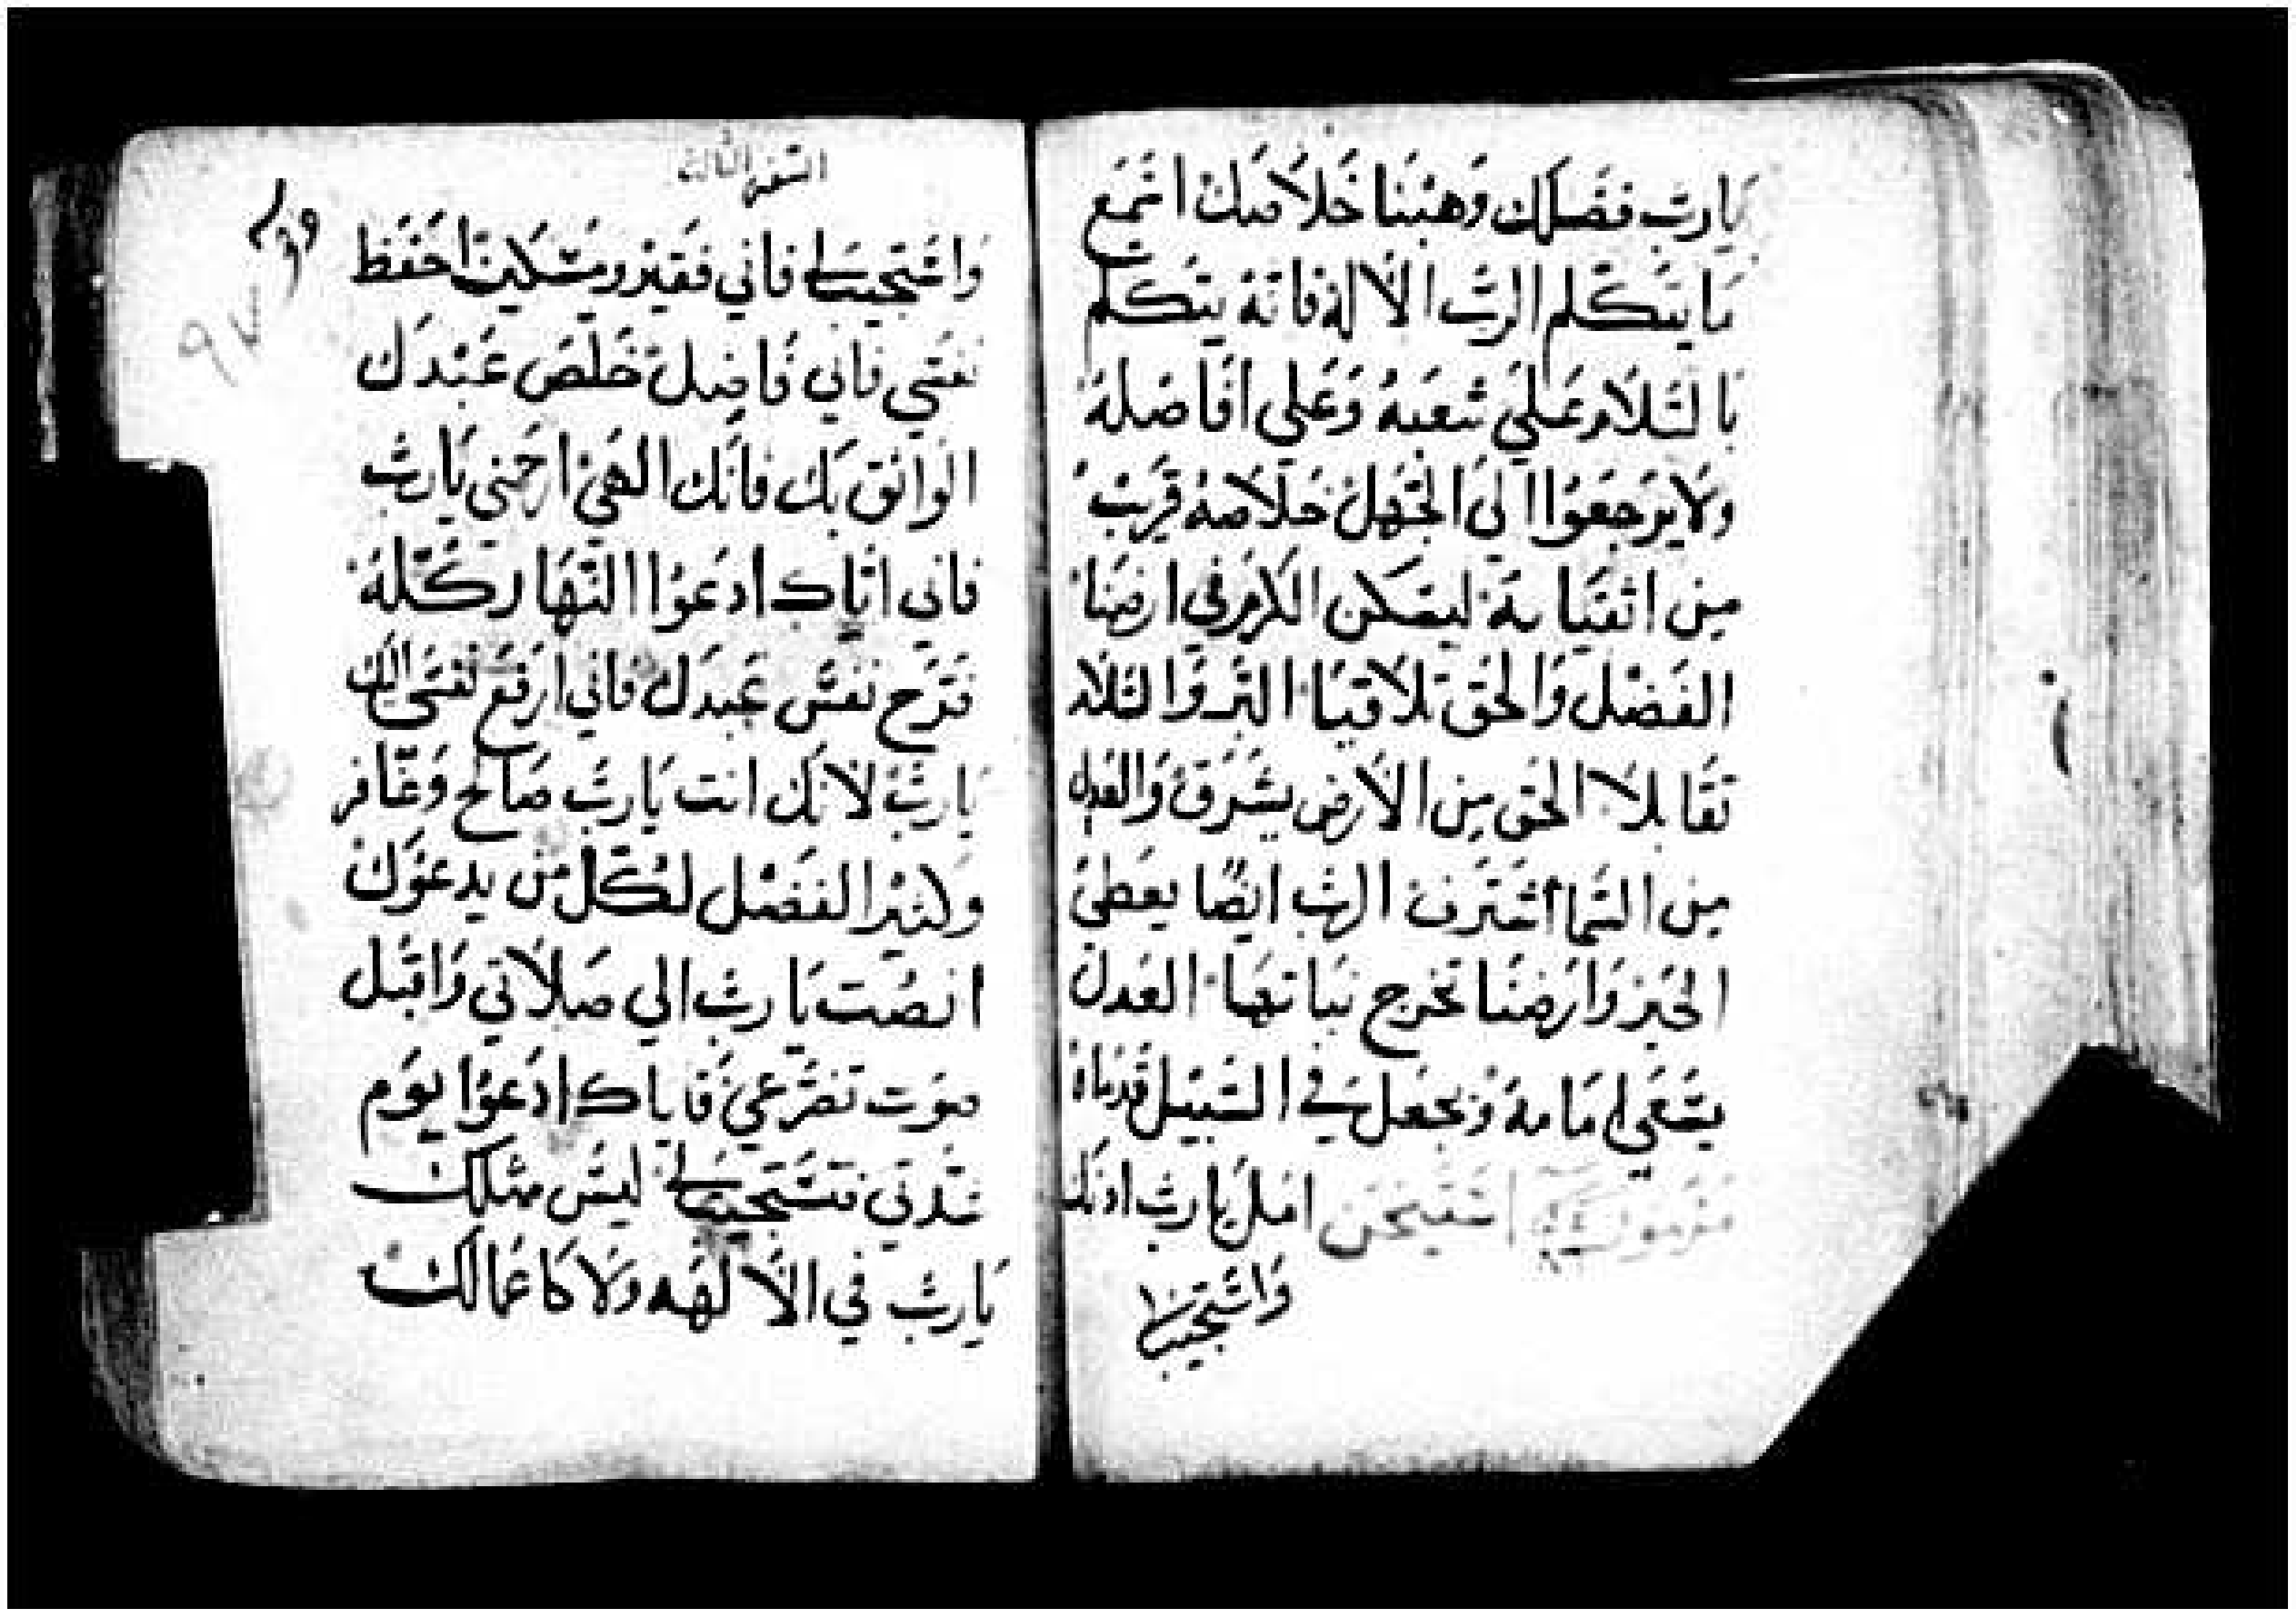 يارب فضلك وهبنا خلاصك اسمع
ما يتكلم الرب الاله فانه يتكلم
بالسلام علي شعبه وعلي افاضله
ولا يرجعوا الي الجهل خلاصه قريب
من اتقيايه ليسكن الكرم في ارضنا
الفضل والحق تلاقيا البر والسلام
تقابلا الحق من الارض يشرق والعدل
من السما اشترف الرب ايضا يعطي
الخير وارضنا تخرج نباتها العدل
يسعي امامه ويجعل في السبيل قدماه
مزمور امل يارب اذنك
واستجيب لي
السفر الثالث
واستجيب لي فاني فقير ومسكين احفظ
نفسي فاني فاضل خلص عبدك
الواثق بك فانك الهي ارحمني يارب
فاني اياك ادعوا النهار كله
فرح نفس عبدك فاني ارفع نفسي اليك
يارب لانك انت يارب صالح وغافر
وكثير الفضل لكل من يدعوك
انصت يارب الي صلاتي واقبل
صوت تضرعي فاياك ادعوا يوم
شدتي فتستجيب لي ليس مثلك
يارب في الالهه ولا كاعمالك